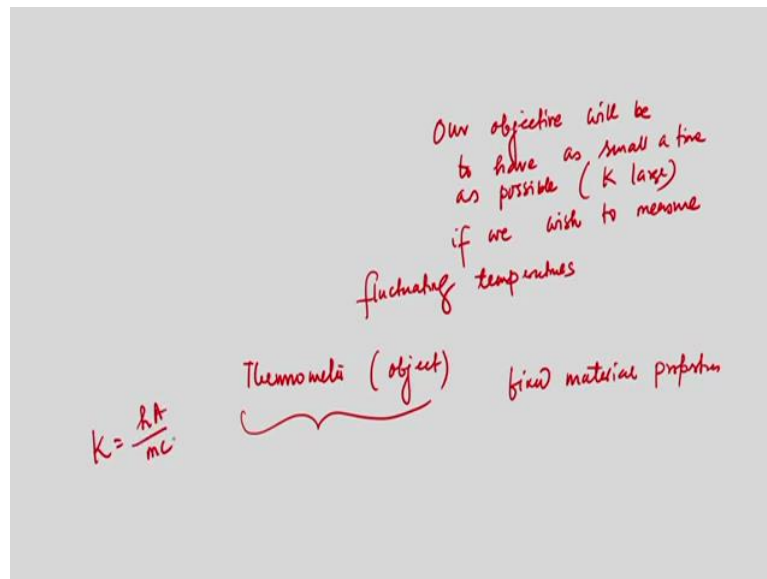 Our objective will be
to have as small a time
as possible (K large)
if we wish to measure
fluctuating temperatures
Thermometer (object) fixed material properties
K = hA/mC